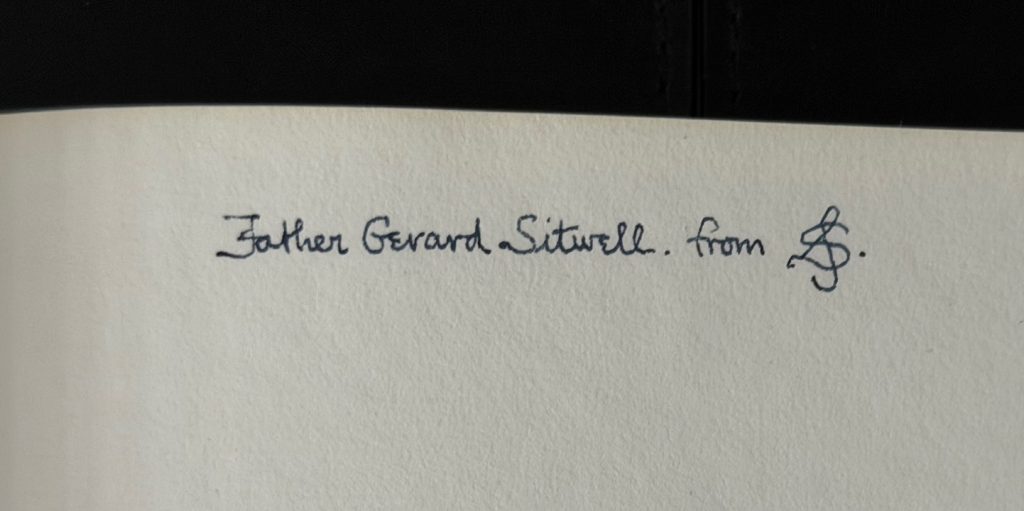 Father Gerard Sitwell. from